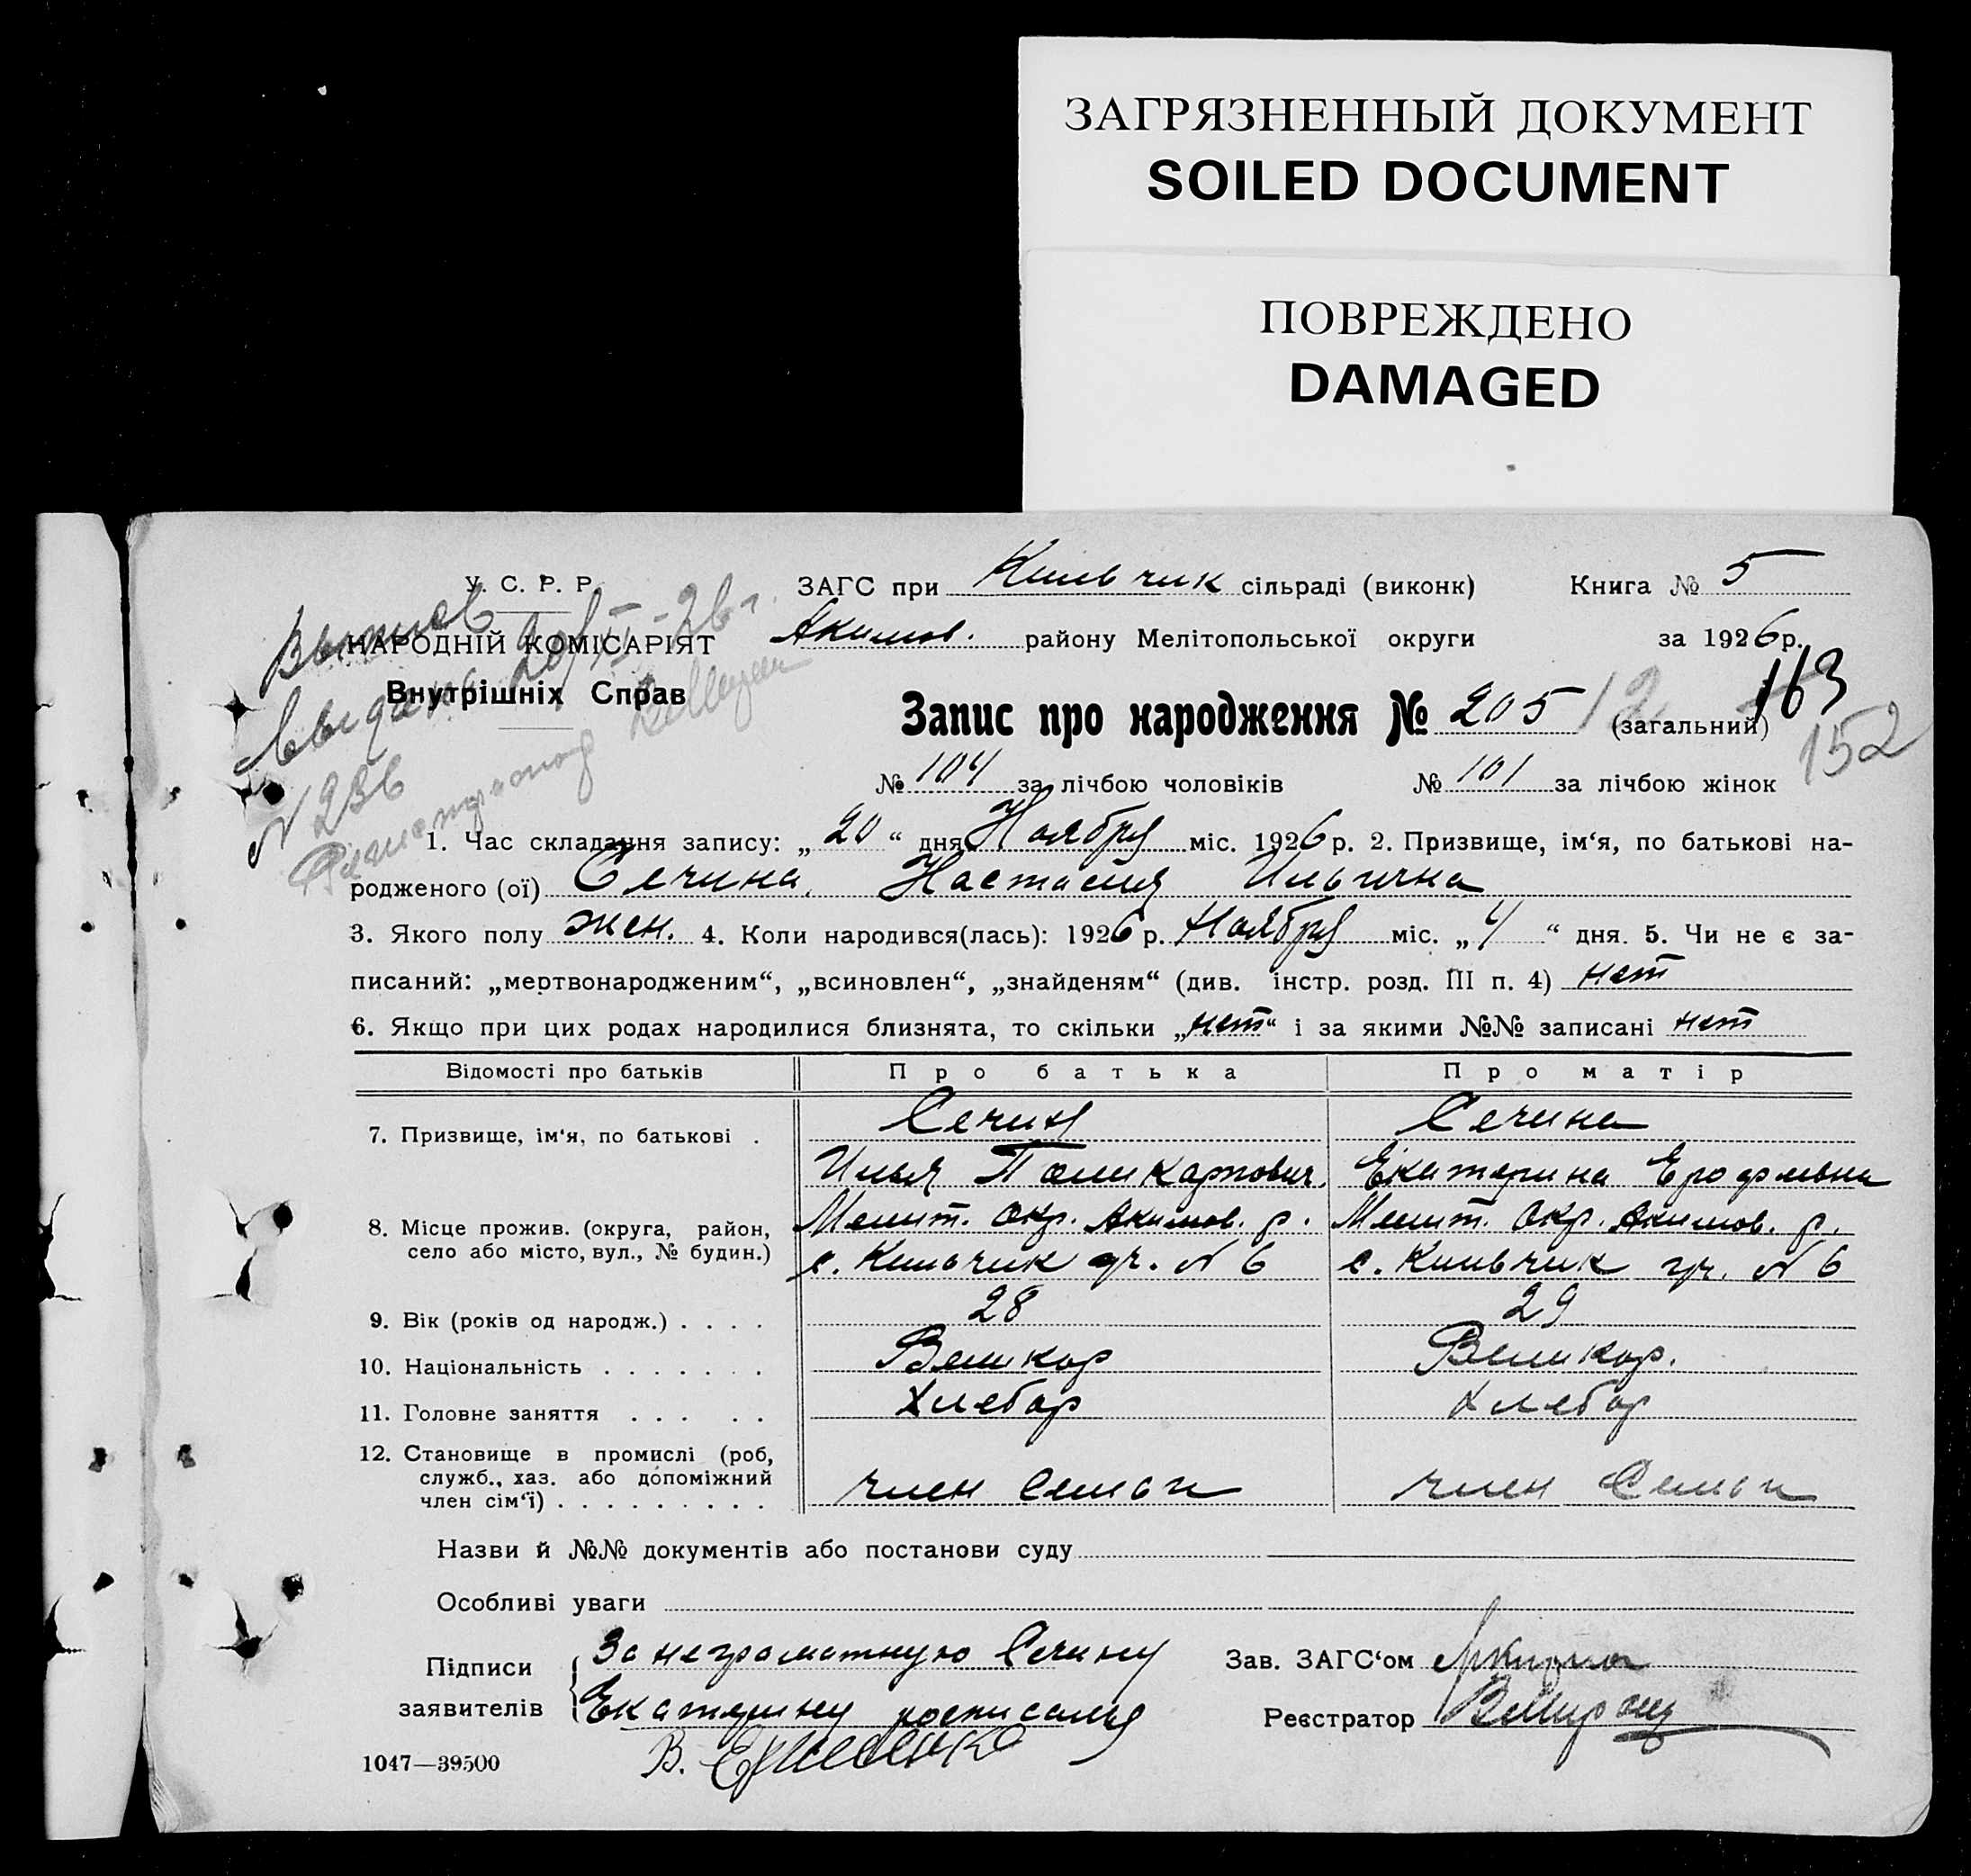 ЗАГРЯЗНЕННЫЙ ДОКУМЕНТ
SOILED DOCUMENT
ПОВРЕЖДЕНО
DAMAGED
У. С. Р. Р.
НАРОДНІЙ КОМІСАРІЯТ
Внутрішніх Справ
выдана 20/XI-26 г.
N 236
ЗАГС при Кильчик сільраді (виконк) Книга № 5
Акимов. району Мелітопольської округи за 1926 р.
Запис про народження № 205 12 (загальний) 163
152
№ 104 за лічбою чоловіків № 101 за лічбою жінок
1. Час складання запису: „20“ дня Ноября міс. 1926 р. 2. Призвище, ім‘я, по батькові на-
родженого (ої) Сечина Настасия Ильична
3. Якого полу жен. 4. Коли народився(лась): 1926 р. Ноября міс. „4“ дня. 5. Чи не є за-
писаний: „мертвонародженим“, „всиновлен“, „знайденям“ (див. інстр. розд. III п. 4) нет
6. Якщо при цих родах народилися близнята, то скільки „нет“ і за якими №№ записані нет
Відомості про батьків Про батька Про матір
7. Призвище, ім‘я, по батькові . Сечин Сечина
Илья Поликарпович Екатерина Ерофеевна
8. Місце прожив. (округа, район, Мелит. окр. Акимов. р. Мелит. окр. Акимов. р.
село або місто, вул., № будин.) с. Кильчик уч. N 6 с. Кильчик уч. N 6
9. Вік (років од народж.) . . . . 28 29
10. Національність . . . . . . . Великор Великор.
11. Головне заняття . . . . . Хлебор Хлебор
12. Становище в промислі (роб,
служб., хаз. або допоміжний
член сім‘ї) . . . . . . . . . член семьи член семьи
Назви й №№ документів або постанови суду
Особливі уваги
Підписи За неграматную Сечину
заявителів Екатерину росписался
Зав. ЗАГС‘ом
Реєстратор
1047—39500